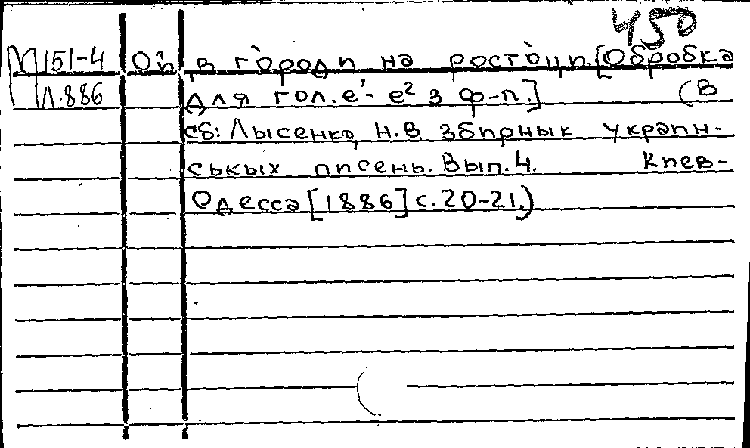 450
М151-4 Ой, в городи на ростоци. [Обробка
Л.886 для гол. е¹- е² з ф-п.] (В
сб: Лысенко, Н.В збирнык украин-
ськых писень. Вып. 4. Киев-
Одесса [1886] с. 20-21.)